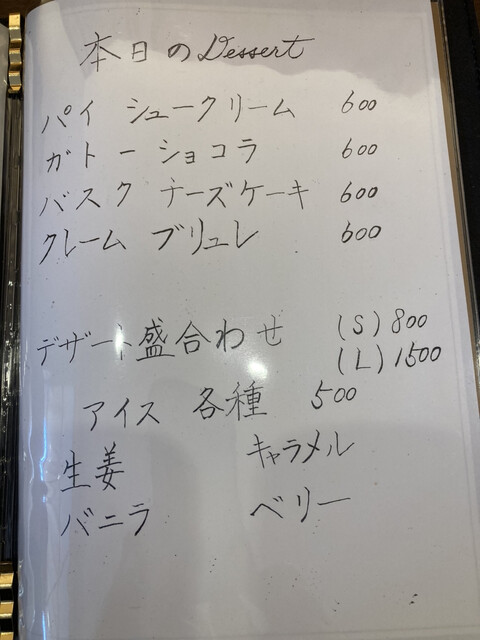 本日のDessert
パイ シュークリーム 600
ガトーショコラ 600
バスク チーズケーキ 600
クレーム ブリュレ 600
デザート盛合わせ (S) 800
(L) 1500
アイス 各種 500
生姜 キャラメル
バニラ ベリー